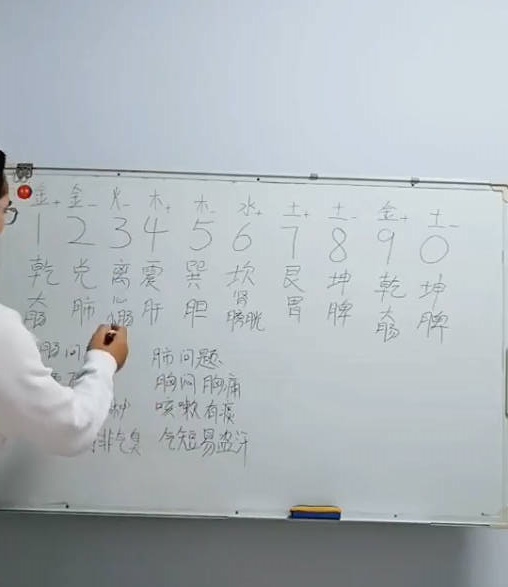 金+ 金- 火- 木+ 木- 水+ 土+ 土- 金+ 土-
1 2 3 4 5 6 7 8 9 0
乾 兑 离 震 巽 坎 艮 坤 乾 坤
大肠 肺 心 肝 胆 肾膀胱 胃 脾 大肠 脾
肠问 肺问题
胸闷胸痛
咳嗽有痰
排气臭 气短易盗汗